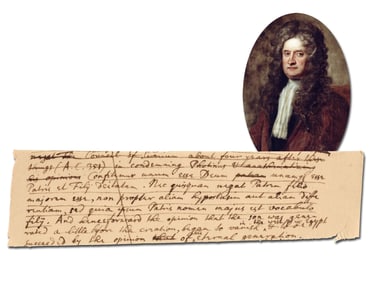 Council of Sirmium about four years after
(A.C. 357) in condemning Photinus
Confitemur unum esse Deum unamq esse
Patris et Filij deitatem. Nec quisquam negat Patrem filio
majorem esse, non propter aliam hypostasin aut aliam diffe
rentiam sed quia ipsum Patris nomen majus est vocabulo
filij. And henceforward the opinion that the son was gene
rated a little before the creation, began to vanish & to be
in the west & in Egypt
succeeded by the opinion of eternal generation.